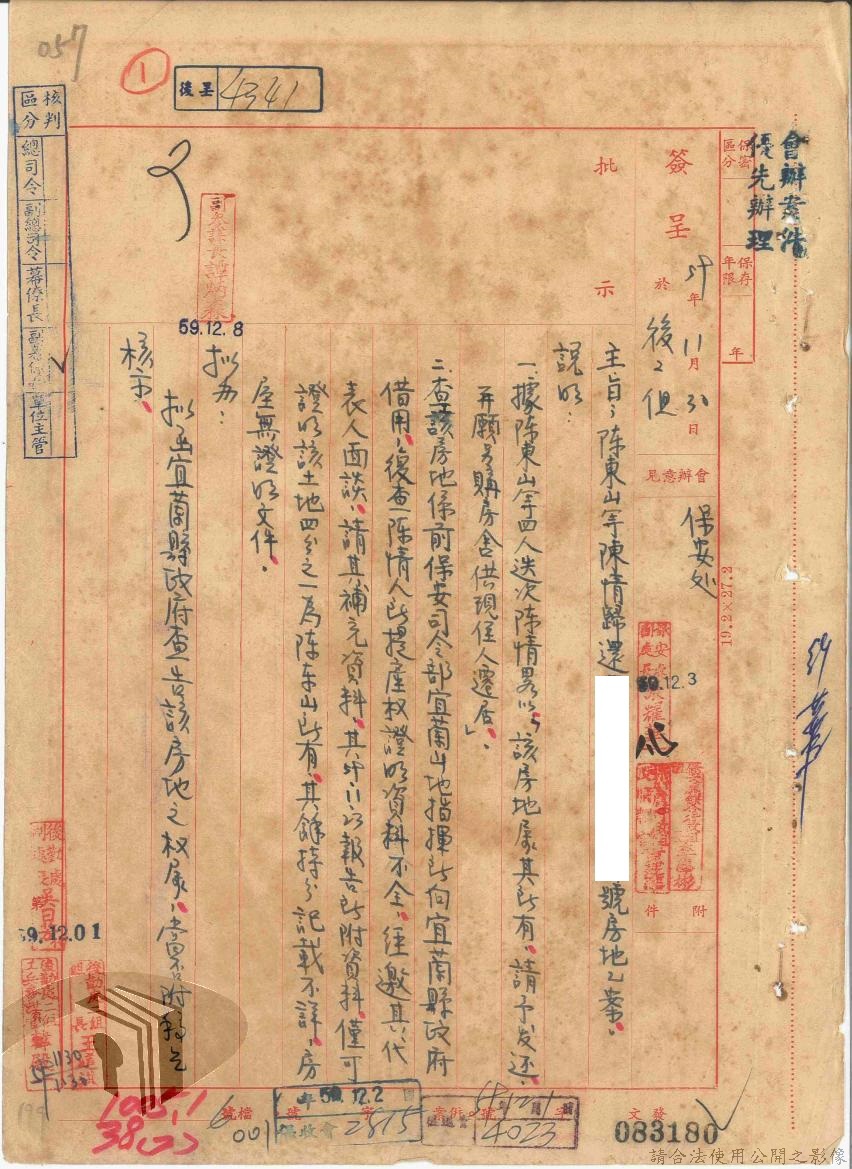 057
1
後呈 4341
會辦案件
優先辦理
保密區分
保存年限
年
簽呈
於59年11月30日
後二組
批示
會辦意見
保安处
59.12.3
附件
19.2×27.2
主旨：陈東山等陳情歸還
號房地乙案。
說明：
一、據陈東山等四人迭次陈情畧以「該房地屬其所有，請予发还，
並願另購房舍供現住人遷居」。
二、查該房地係前保安司令部宜蘭山地指揮所向宜蘭縣政府
借用，復查陈情人所提產权證明資料不全，經邀其代
表人面談，請其補充資料，其59.11.23報告所附資料，僅可
證明該土地四分之一為陈东山所有，其餘持分記載不詳，房
屋無證明文件。
拟办：
拟函宜蘭縣政府查告該房地之权屬，當否附稿乞
核示。
59.12.8
核判區分
總司令
副總司令
幕僚長
單位主管
59.12.01
11.30
1130
1005.1
檔號
6001
59.12.2
收會
2815
字
號
4023
發文
083180
請合法使用公開之影像